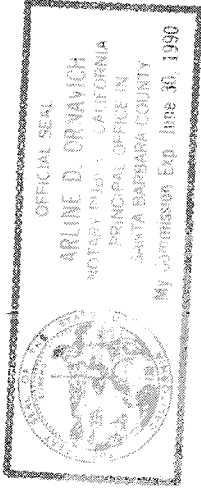 OFFICIAL SEAL
ARLINE D. ORNAVICH
NOTARY PUBLIC - CALIFORNIA
PRINCIPAL OFFICE IN
SANTA BARBARA COUNTY
My Commission Exp. June 30, 1990